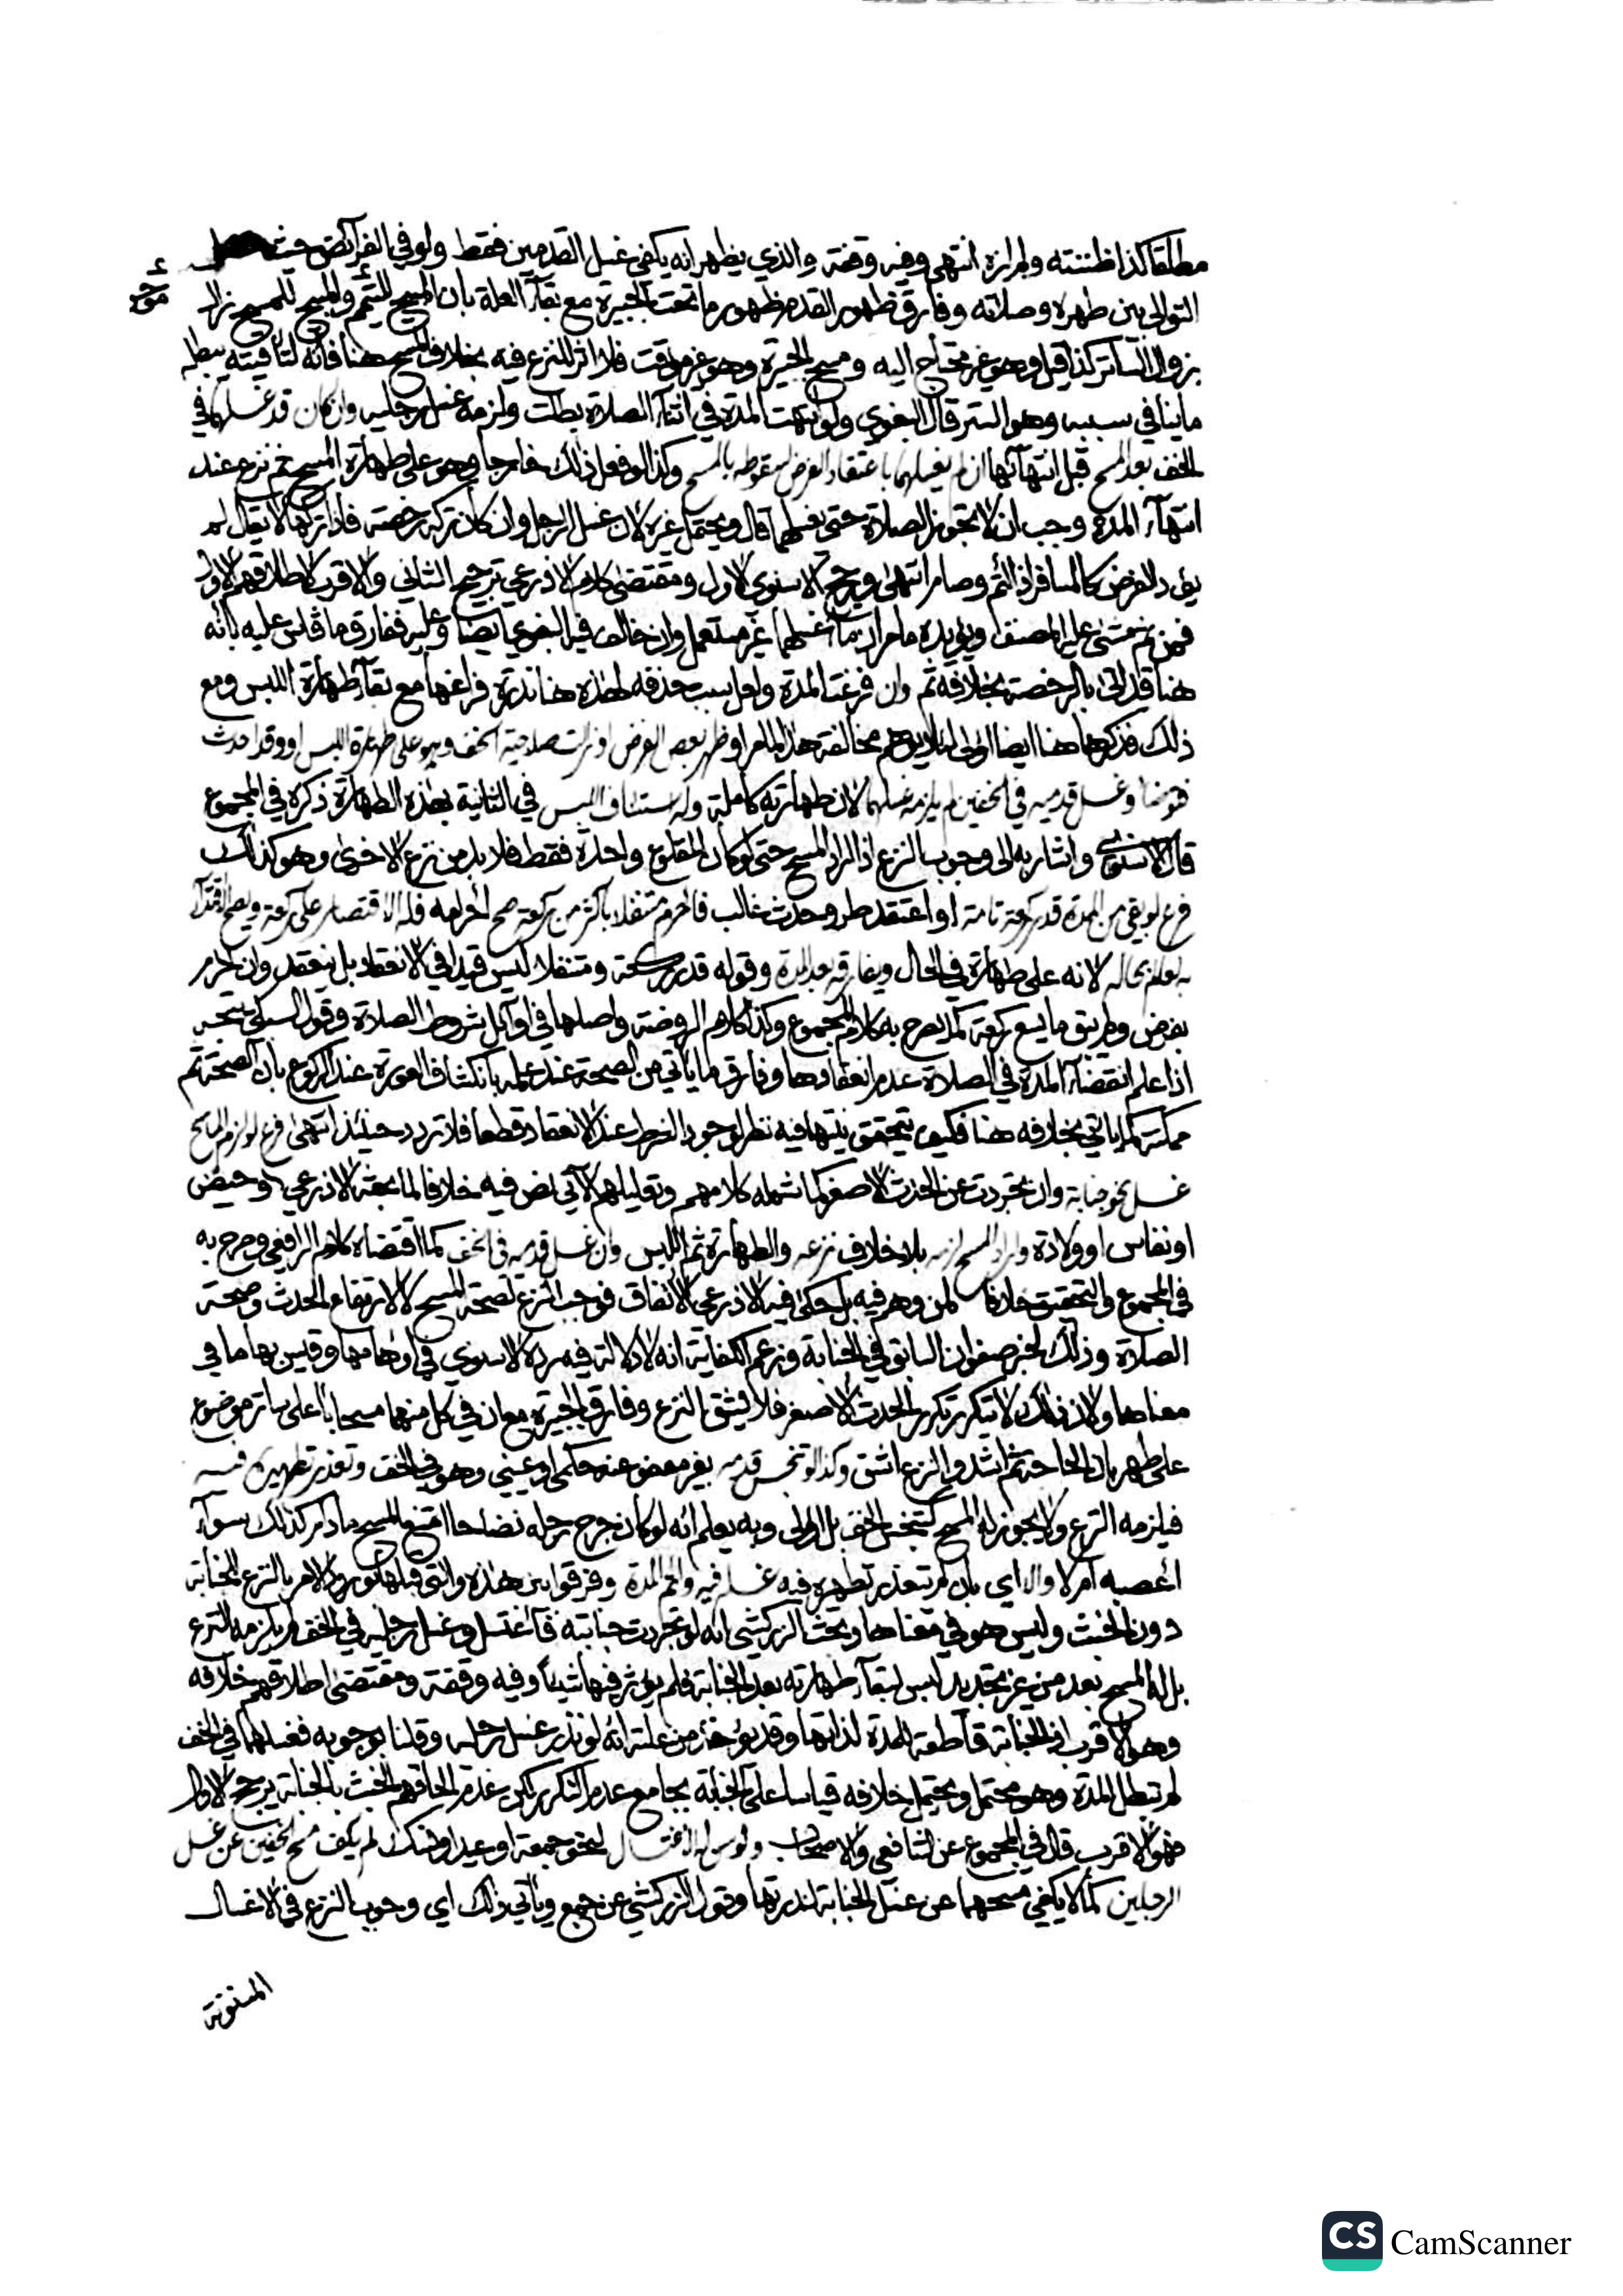 مطلقا كذا ظننته ولم اره انتهى وفيه وقفة والذي يظهر انه يكفي غسل القدمين فقط ولو في الفرائض حيث حصل
مؤخر
التوالي بين طهره وصلاته وفارق ظهور القدم ظهور ما تحت الجبيرة مع بقاء العلة بان المبيح للتيمم والمبيح للمسح زال
بزوال الساتر كذا قيل وهو غير محتاج اليه ومسح الجبيرة وهو غير مؤقت فلا اثر للنزع فيه بخلاف المسح هنا فانه لتاقيته يبطله
ما ينافي سببه وهو الستر قال البغوي ولو انتهت المدة في اثناء الصلاة بطلت ولزمه غسل رجليه وان كان قد غسلهما في
الخف بعد المسح قبل انتهائها ان لم يغسلهما باعتقاد الفرض لسقوطه بالمسح وكذا لو فعل ذلك خارجا وهو على طهارة المسح ثم نزع عند
انتهاء المدة وجب ان لا تجوز الصلاة حتى يغسلهما قال ويحتمل غيره لان غسل الرجل وان كان تركه رخصة فاذا تركها لا يقال لم
يؤد الفرض كالمسافر اذا اتم وصام انتهى ورجح الاسنوي الاول ومقتضى كلام الاذرعي ترجيح الثاني والاقرب لاطلاقهم الاول
فمن ثم مشى عليه المصنف ويؤيده ما مر ان ماء غسلهما غير مستعمل وان خالف فيه البغوي ايضا وعليه ففارق ما قاس عليه بانه
هنا قد اتى بالرخصة بخلافه ثم وان فرغت المدة ولعل سبب حذفه لهذه هنا ندرة فراغها مع بقاء طهارة اللبس ومع
ذلك فذكرها هنا ايضا اولى لئلا يوهم مخالفة هذا لما مر او ظهر بعض الفرض او زالت صلاحية الخف وهو على طهارة اللبس او وقد احدث
فتوضا وغسل قدميه في الخفين لم يلزمه غسلهما لان طهارته كاملة وله استئناف اللبس في الثانية بهذه الطهارة ذكره في المجموع
قال الاسنوي واشار به الى وجوب النزع اذا اراد المسح حتى لو كان المقلوع واحدة فقط فلا بد من نزع الاخرى وهو كذلك
فرع لو بقي من المدة قدر ركعة تامة او اعتقد طرو حدث غالب فاحرم متنفلا باكثر من ركعة صح احرامه فله الاقتصار على ركعة ويصح الاقتداء
به لعالم بحاله لانه على طهارة في الحال ويفارقه بعد المدة وقوله قدر ركعة ومتنفلا ليس قيدا في الانعقاد بل ينعقد وان احرم
بفرض ولم يبق ما يسع ركعة كما يصرح به كلام المجموع وكذا كلام الروضة واصلها في اوائل شروط الصلاة وقول السبكي يتجه
اذا علم انقضاء المدة في الصلاة عدم انعقادها وفارق ما ياتي من الصحة عند علمه بانكشاف العورة عند الركوع بان الصحة ثم
ممكنة كما ياتي بخلافه هنا فكيف يتحقق نيتها فيه نظر لوجود الشرط عند الانعقاد قطعا فلا تردد حينئذ انتهى فرع لو لزم الماسح
غسل نحو جنابة وان تجردت عن الحدث الاصغر كما شمله كلامهم وتعليلهم الآتي نص فيه خلافا لما بحثه الاذرعي او حيض
او نفاس او ولادة واراد المسح لزمه بلا خلاف نزعه والطهارة ثم اللبس وان غسل قدميه في الخف كما اقتضاه كلام الرافعي وصرح به
في المجموع والتحقيق خلافا لمن وهم فيه بل حكى فيه الاذرعي الاتفاق فوجب النزع لصحة المسح لا لارتفاع الحدث وصحة
الصلاة وذلك لخبر صفوان السابق في الجنابة وزعم الكفاية انه لا دلالة فيه رده الاسنوي في اوهامها وقيس بها ما في
معناها ولان ذلك لا يتكرر تكرر الحدث الاصغر فلا يشق النزع وفارق الجبيرة مع ان في كل منهما مسحا باعلى ساتر موضوع
على طهر بان الحاجة ثم اشد والنزع اشق وكذا لو تنجس قدمه بغير معفو عنه حكمي او عيني وهو في الخف وتعذر تطهيره فيه
فيلزمه النزع ولا يجوز له المسح كتنجس الخف بل اولى وبه يعلم انه لو كان جرح رجله نضاحا امتنع المسح ما دام كذلك سواء
أعصبه ام لا والا اي بان لم يتعذر تطهيره فيه غسله فيه واتم المدة وفرقوا بين هذه والتي قبلها لورود الامر بالنزع للجنابة
دون الخبث وليس هو في معناها وبحث الزركشي انه لو تجردت جنابته فاغتسل وغسل رجليه في الخف لم يلزمه النزع
بل له المسح بعد من غير تجديد لبس لبقاء طهارته بعد الجنابة فلم يؤثر فيها شيئا وفيه وقفة ومقتضى اطلاقهم خلافه
وهو الاقرب اذ الجنابة قاطعة للمدة لذاتها وقد يؤخذ من علته انه لو نذر غسل رجله وقلنا بوجوبه فغسلهما في الخف
لم تبطل المدة وهو محتمل ويحتمل خلافه قياسا على الجنابة بجامع عدم التكرر لكن عدم الحاقهم الخبث بالجنابة يرجح الاول
فهو الاقرب قال في المجموع عن الشافعي والاصحاب ولو سن له الاغتسال لنحو جمعة او عيد او نسك لم يكف مسح الخفين عن غسل
الرجلين كما لا يكفي مسحهما عن غسل الجنابة لندرتها وقول الزركشي عن جمع وياتي ذلك اي وجوب النزع في الاغسال
المسنونة
CS CamScanner